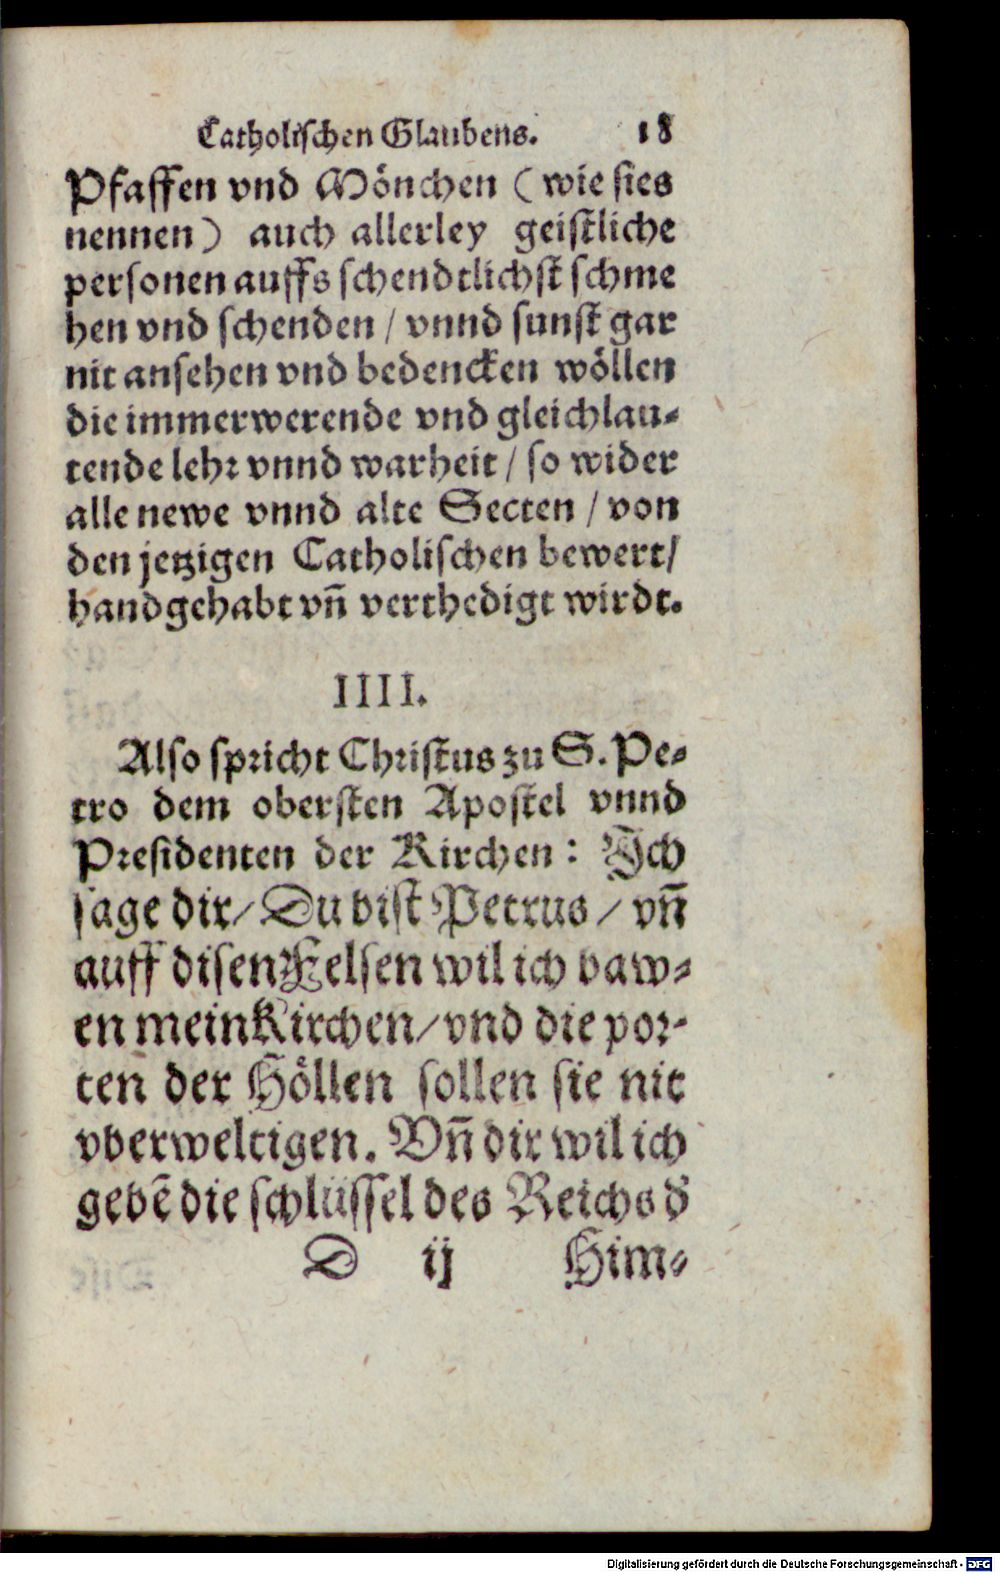 Catholischen Glaubens. 18
Pfaffen vnd Mönchen (wie sies
nennen) auch allerley geistliche
personen auffs schendtlichst schme
hen vnd schenden / vnnd sunst gar
nit ansehen vnd bedencken wöllen
die immerwerende vnd gleichlau-
tende lehr vnnd warheit / so wider
alle newe vnnd alte Secten / von
den jetzigen Catholischen bewert/
handgehabt vñ verthedigt wirdt.
IIII.
Also spricht Christus zu S. Pe-
tro dem obersten Apostel vnnd
Presidenten der Kirchen: Ich
sage dir/ Du bist Petrus / vñ
auff disen Felsen wil ich baw-
en mein Kirchen/ vnd die por-
ten der Höllen sollen sie nit
vberweltigen. Vñ dir wil ich
gebẽ die schlüssel des Reichs d̕
D ij Him-
Digitalisierung gefördert durch die Deutsche Forschungsgemeinschaft - DFG